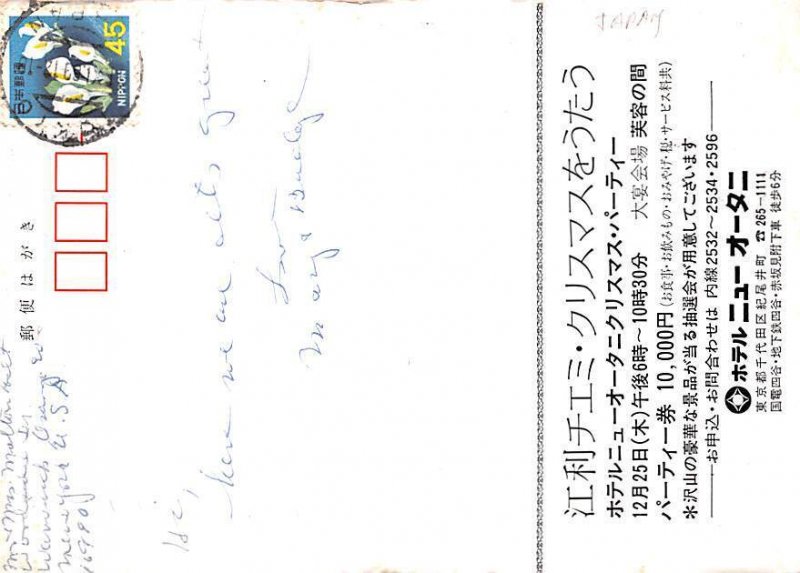 JAPAN
45
NIPPON
日本郵便
郵便はがき
Mr & Mrs
Warwick
New York U.S.A
10990
Hi,
Here we are
Love
江利チエミ・クリスマスをうたう
ホテルニューオータニクリスマス・パーティー
12月25日(木)午後6時〜10時30分 大宴会場 芙蓉の間
パーティー券 10,000円(お食事・お飲みもの・おみやげ・税・サービス料共)
＊沢山の豪華な景品が当る抽選会が用意してございます
お申込・お問合わせは 内線2532〜2534・2596
ホテル ニュー オータニ
東京都千代田区紀尾井町 ☎265-1111
国電四谷・地下鉄四谷・赤坂見附下車 徒歩6分